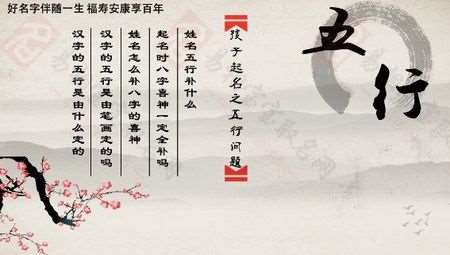 好名字伴随一生 福寿安康享百年
五行
孩子起名之五行问题
姓名五行补什么
起名时八字喜神一定全补吗
姓名怎么补八字的喜神
汉字的五行是由笔画定的吗
汉字的五行是由什么定的